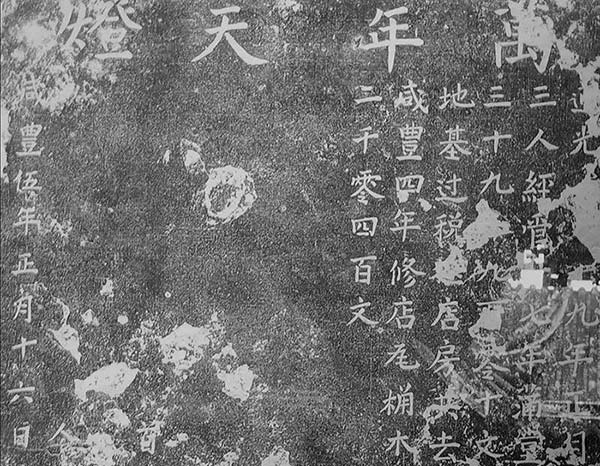 萬年天燈
道光九年正月
三人經管七年蒲堂
三十九零十文
地基过税店房共去
咸豐四年修店瓦桷木
二千零四百文
首人
咸豐伍年正月十六日